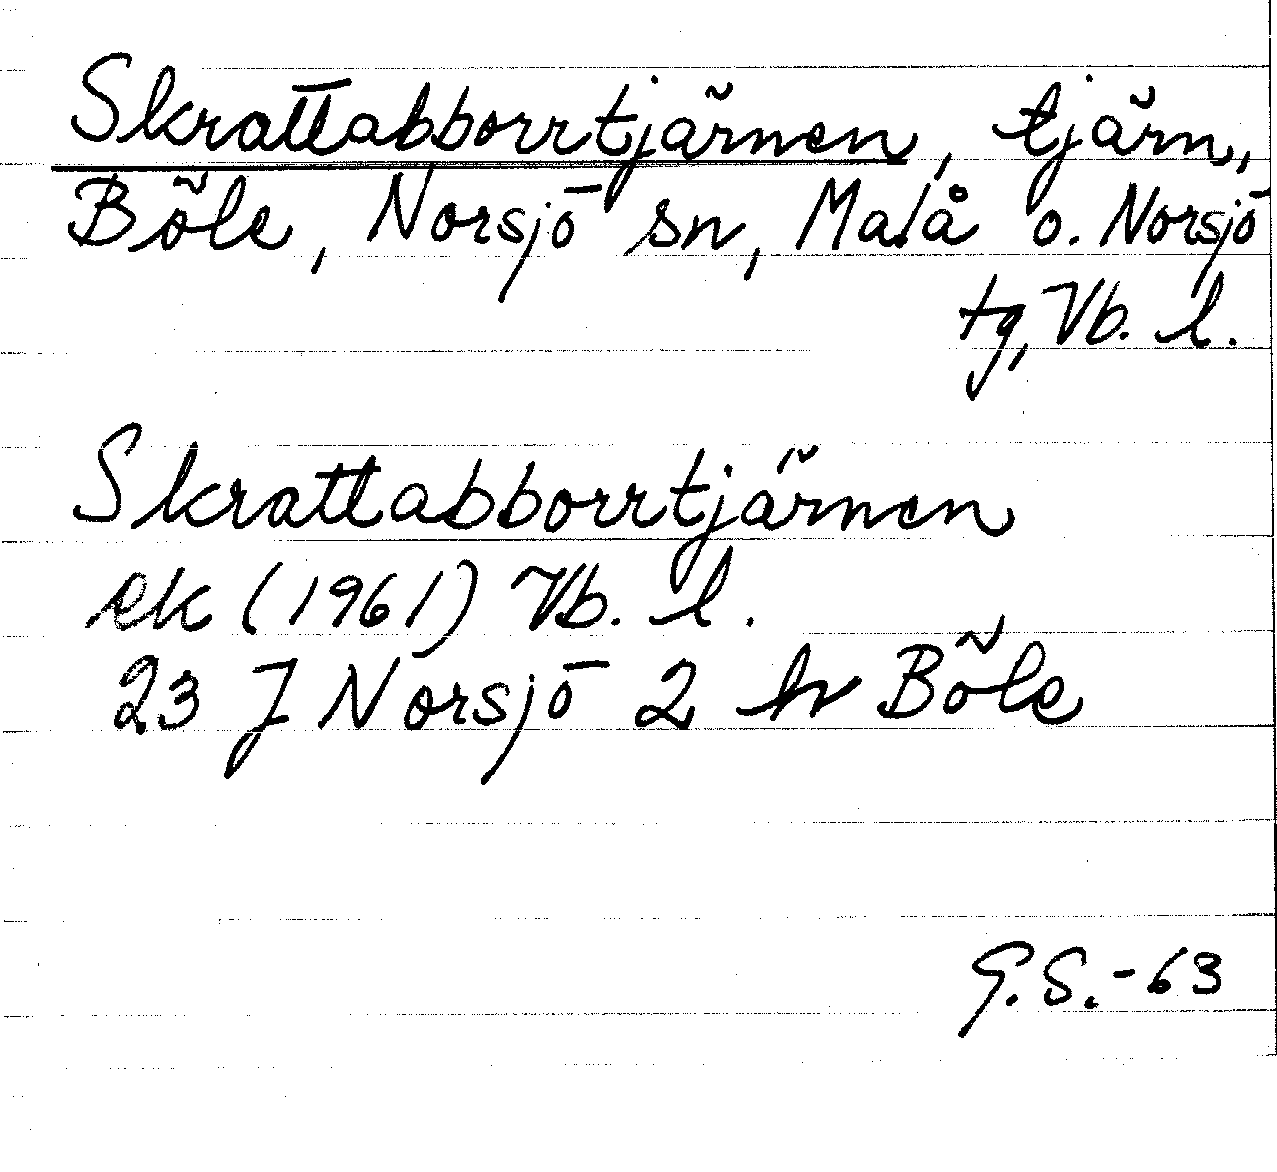 Skrattabborrtjärnen, tjärn,
Böle, Norsjö sn, Malå o. Norsjö
tg, Vb. l.
Skrattabborrtjärnen
ek (1961) Vb. l.
23 J Norsjö 2 h Böle
G.S.-63